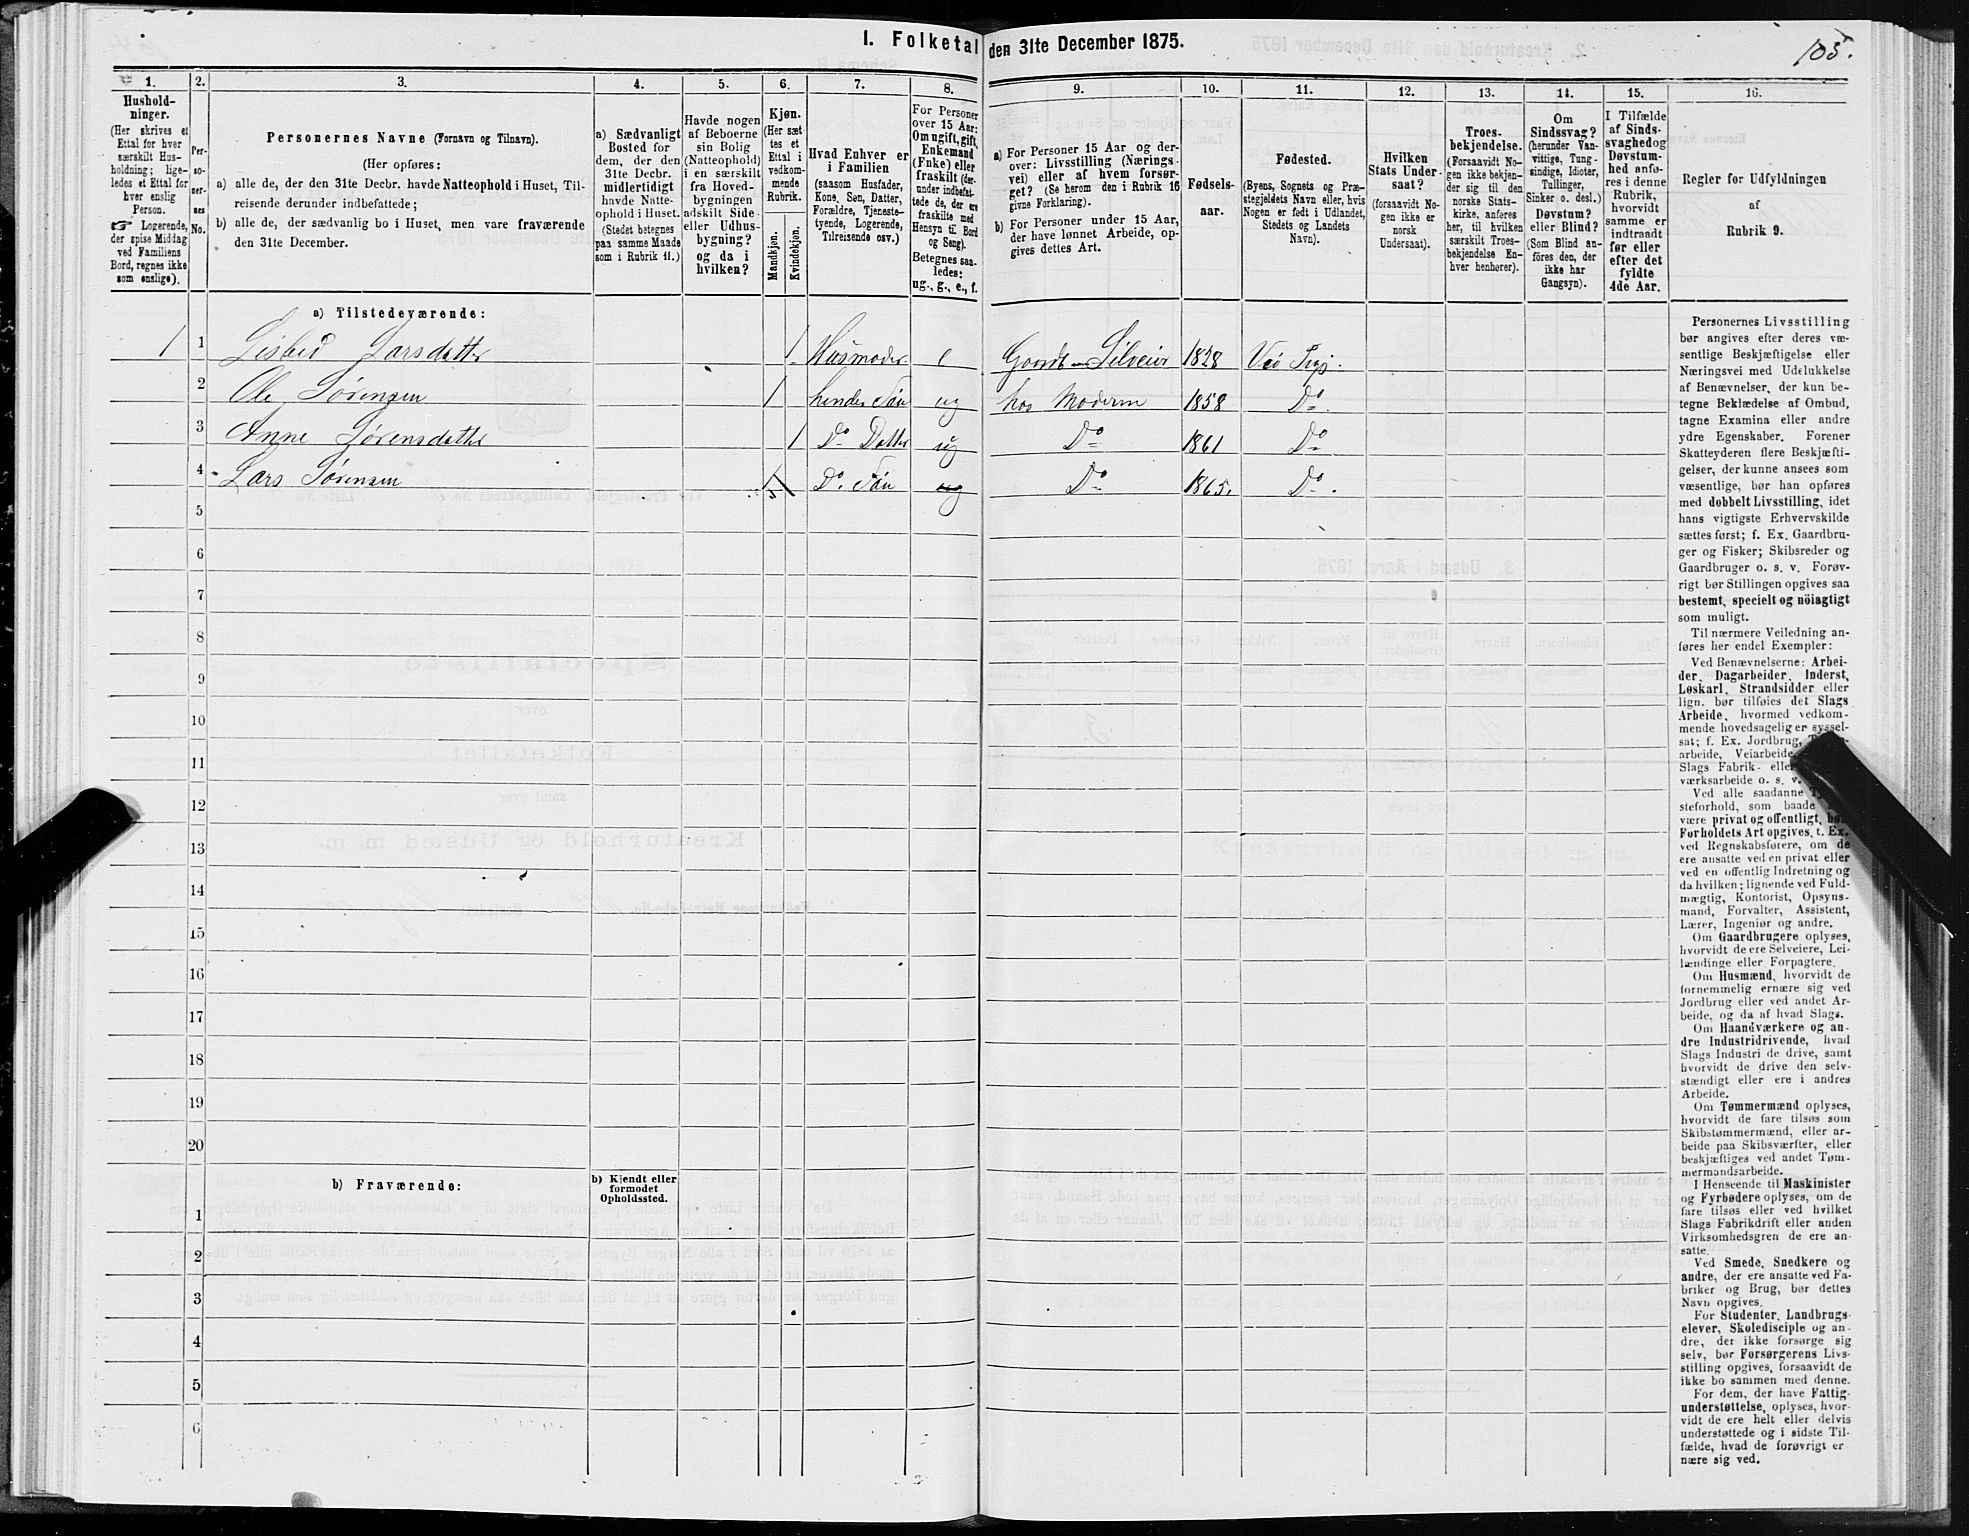 I. Folketal den 31te December 1875.
105.
1.
2.
3.
4.
5.
6.
7.
8.
9.
10.
11.
12.
13.
14.
15.
16.
Hushold-
ninger.
(Her skrives et
Ettal for hver
særskilt Hus-
holdning; lige-
ledes et Ettal for
hver enslig
Person.
☞ Logerende,
der spise Middag
ved Familiens
Bord, regnes ikke
som enslige).
Per-
so-
ner-
nes
No.
Personernes Navne (Fornavn og Tilnavn).
(Her opføres:
a) alle de, der den 31te Decbr. havde Natteophold i Huset, Til-
reisende derunder indbefattede;
b) alle de, der sædvanlig bo i Huset, men vare fraværende
den 31te December.
a) Sædvanligt
Bosted for
dem, der den
31te Decbr.
midlertidigt
havde Natte-
ophold i Huset.
(Stedet betegnes
paa samme Maade
som i Rubrik 11.)
Havde nogen
af Beboerne
sin Bolig
(Natteophold)
i en særskilt
fra Hoved-
bygningen
adskilt Side-
eller Udhus-
bygning?
og da i
hvilken?
Kjøn.
(Her sæt-
tes et
Ettal i
vedkom-
mende
Rubrik.
Mandkjøn.
Kvindekjøn.
Hvad Enhver er
i Familien
(saasom Husfader,
Kone, Søn, Datter,
Forældre, Tjeneste-
tyende, Logerende,
Tilreisende osv.)
For Personer
over 15 Aar:
Om ugift, gift,
Enkemand
(Enke) eller
fraskilt (der-
under indbefat-
tede de, der ere
fraskilte med
Hensyn til Bord
og Seng).
Betegnes saa-
ledes:
ug., g., e., f.
a) For Personer 15 Aar og der-
over: Livsstilling (Nærings-
vei) eller af hvem forsør-
get? (Se herom den i Rubrik 16
givne Forklaring).
b) For Personer under 15 Aar,
der have lønnet Arbeide, op-
gives dettes Art.
Fødsels-
aar.
Fødested.
(Byens, Sognets og Præ-
stegjeldets Navn eller, hvis
Nogen er født i Udlandet,
Stedets og Landets
Navn).
Hvilken
Stats Under-
saat?
(forsaavidt No-
gen ikke er
norsk
Undersaat).
Troes-
bekjendelse.
(Forsaavidt No-
gen ikke bekjen-
der sig til den
norske Stats-
kirke, anføres
her, til hvilken
særskilt Troes-
bekjendelse En-
hver henhører).
Om
Sindssvag?
(herunder Van-
vittige, Tung-
sindige, Idioter,
Tullinger,
Sinker o. desl.)
Døvstum?
eller Blind?
(Som Blind an-
føres den, der
ikke har
Gangsyn).
I Tilfælde
af Sinds-
svaghed og
Døvstum-
hed anfø-
res i denne
Rubrik,
hvorvidt
samme er
indtraadt
før eller
efter det
fyldte
4de Aar.
Regler for Udfyldningen
af
Rubrik 9.
a) Tilstedeværende:
1 1 Lisbed Larsdatter 1 Husmoder e Gaardb Selveier 1828 Vio Sogn
2 Ole Sørensen 1 hendes Søn ug hos Moderen 1858 Do
3 Anne Sørensdatter 1 Do Datter ug Do 1861 Do
4 Lars Sørensen 1 Do Søn ug Do 1865. Do.
5
6
7
8
9
10
11
12
13
14
15
16
17
18
19
20
b) Fraværende:
b) Kjendt eller
formodet
Opholdssted.
1
2
3
4
5
6
Personernes Livsstilling
bør angives efter deres væ-
sentlige Beskjæftigelse eller
Næringsvei med Udelukkelse
af Benævnelser, der kun be-
tegne Beklædelse af Ombud,
tagne Examina eller andre
ydre Egenskaber. Forener
Skatteyderen flere Beskjæfti-
gelser, der kunne ansees som
væsentlige, bør han opføres
med dobbelt Livsstilling, idet
hans vigtigste Erhvervskilde
sættes først; f. Ex. Gaardbru-
ger og Fisker; Skibsreder og
Gaardbruger o. s. v. Forøv-
rigt bør Stillingen opgives saa
bestemt, specielt og nöiagtigt
som muligt.
Til nærmere Veiledning an-
føres her endel Exempler:
Ved Benævnelserne: Arbei-
der, Dagarbeider, Inderst,
Løskarl, Strandsidder eller
lign. bør tilføies det Slags
Arbeide, hvormed vedkom-
mende hovedsagelig er syssel-
sat; f. Ex. Jordbrug,
arbeide, Veiarbeide,
Slags Fabrik- eller
værksarbeide o. s. v.
Ved alle saadanne
steforhold, som baade
være privat og offentligt, bør
Forholdets Art opgives, t. Ex.
ved Regnskabsførere, om de
ere ansatte ved en privat eller
ved en offentlig Indretning og
da hvilken; lignende ved Fuld-
mægtig, Kontorist, Opsyns-
mand, Forvalter, Assistent,
Lærer, Ingeniør og andre.
Om Gaardbrugere oplyses,
hvorvidt de ere Selveiere, Lei-
lændinge eller Forpagtere.
Om Husmænd, hvorvidt de
fornemmelig ernære sig ved
Jordbrug eller ved andet Ar-
beide, og da af hvad Slags.
Om Haandværkere og an-
dre Industridrivende, hvad
Slags Industri de drive, samt
hvorvidt de drive den selv-
stændigt eller ere i andres
Arbeide.
Om Tømmermænd oplyses,
hvorvidt de fare tilsøs som
Skibstømmermænd, eller ar-
beide paa Skibsværfter, eller
beskjæftiges ved andet Tøm-
mermandsarbeide.
I Henseende til Maskinister
og Fyrbødere oplyses, om de
fare tilsøs eller ved hvilket
Slags Fabrikdrift eller anden
Virksomhedsgren de ere an-
satte.
Ved Smede, Snedkere og
andre, der ere ansatte ved Fa-
briker og Brug, bør dettes
Navn opgives.
For Studenter, Landbrugs-
elever, Skoledisciple og an-
dre, der ikke forsørge sig
selv, bør Forsørgerens Livs-
stilling opgives, forsaavidt de
ikke bo sammen med denne.
For dem, der have Fattig-
understøttelse, oplyses, hvor-
vidt de ere helt eller delvis
understøttede og i sidste Til-
fælde, hvad de forøvrigt er
nære sig ved.